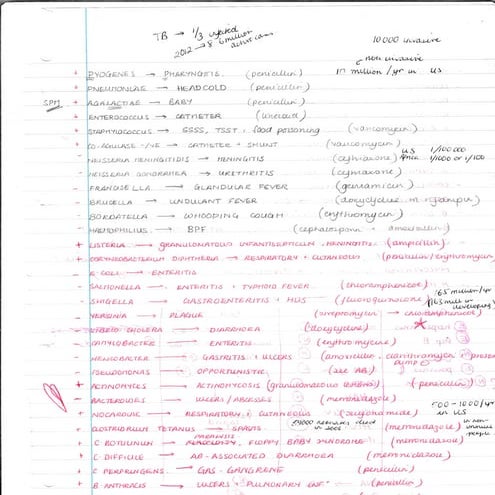 TB → 1/3 infected
2012 → 8.6 million active cases
10 000 invasive
non invasive
+ PYOGENES → PHARYNGITIS (penicillin) 10 million/yr in US
+ PNEUMONIAE → HEADCOLD (penicillin)
+ AGALACTIAE → BABY (penicillin)
+ ENTEROCOCCUS → CATHETER
+ STAPHYLOCOCCUS → SSSS, TSST, food poisoning (vancomycin)
+ CO-AGULASE -/VE → CATHETER + SHUNT (vancomycin) US 1/100000
- NEISSERIA MENINGITIDIS → MENINGITIS (ceftriaxone) Africa 1/1000 or 1/100
- NEISSERIA GONORRHEA → URETHRITIS (ceftriaxone)
- FRANCISELLA → GLANDULAR FEVER (gentamicin)
- BRUCELLA → UNDULANT FEVER (doxycycline rifampin)
- BORDATELLA → WHOOPING COUGH (erythromycin)
- HAEMOPHILIUS → BPF (cephalosporin + amoxicillin)
+ LISTERIA → GRANULOMATOUS INFANTISEPTICUM, MENINGITIS (ampicillin)
+ CORYNEBACTERIUM DIPHTHERIA → RESPIRATORY + CUTANEOUS (penicillin/erythromycin)
- E.COLI → ENTERITIS
- SALMONELLA → ENTERITIS + TYPHOID FEVER (chloramphenicol)
- SHIGELLA → GASTROENTERITIS + HUS (fluoroquinolone) 165 million/yr
163 mill in developing
- YERSINIA → PLAGUE (streptomycin → chloramphenicol)
- VIBRIO CHOLERA → DIARRHOEA (doxycycline)
- CAMPYLOBACTER → ENTERITIS (erythromycin)
- HELICOBACTER → GASTRITIS + ULCERS (amoxicillin clarithromycin
- PSEUDOMONAS → OPPORTUNISTIC (see AB)
+ ACTINOMYCES → ACTINOMYCOSIS (penicillin)
- BACTEROIDES → ULCERS/ABSCESSES (metronidazole)
+ NOCARDIAE → RESPIRATORY, CUTANEOUS (sulfonamide) 500-1000/yr in US
+ CLOSTRIDIUM TETANUS → SPASTIC (metronidazole)
59000 neonates died in 2008
+ C-BOTULINUM → FLOPPY BABY SYNDROME (metronidazole)
+ C-DIFFICILE → AB-ASSOCIATED DIARRHOEA (metronidazole)
+ C PERFRINGENS → GAS-GANGRENE (penicillin)
+ B-ANTHRACIS → ULCERS + PULMONARY (penicillin)